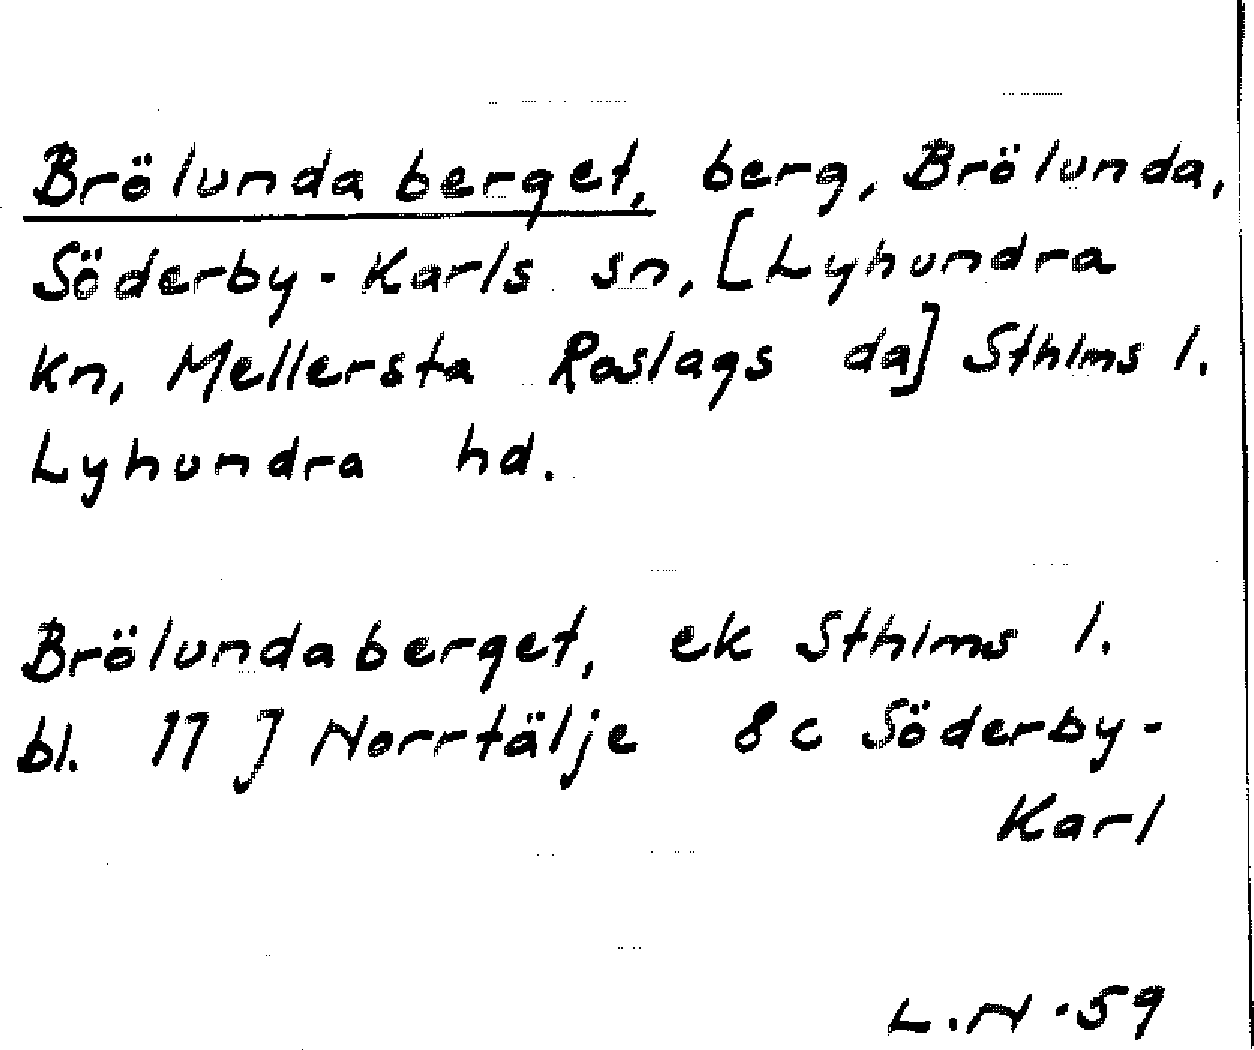 Brölundaberget, berg, Brölunda,
Söderby-Karls sn, [Lyhundra
kn, Mellersta Roslags da] Sthlms l.
Lyhundra hd.
Brölundaberget, ek Sthlms l.
bl. 11 J Norrtälje 8c Söderby-
Karl
L.N-59